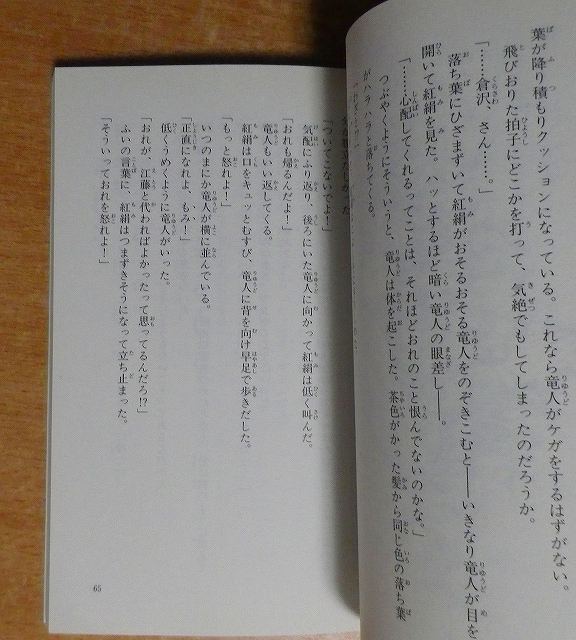 葉が降り積もりクッションになっている。これなら竜人がケガをするはずがない。
飛びおりた拍子にどこかを打って、気絶でもしてしまったのだろうか。
「……倉沢、さん……。」
落ち葉にひざまずいて紅絹がおそるおそる竜人をのぞきこむと——いきなり竜人が目を
開いて紅絹を見た。ハッとするほど暗い竜人の眼差し——。
「……心配してくれるってことは、それほどおれのこと恨んでないのかな。」
つぶやくようにそういうと、竜人は体を起こした。茶色がかった髪から同じ色の落ち葉
がハラハラと落ちてくる。
「ついてこないでよ！」
気配にふり返り、後ろにいた竜人に向かって紅絹は低く叫んだ。
「おれも帰るんだよ！」
竜人もいい返してくる。
紅絹は口をキュッとむすび、竜人に背を向け早足で歩きだした。
「もっと怒れよ！」
いつのまにか竜人が横に並んでいる。
「正直になれよ、もみ！」
低くうめくように竜人がいった。
「おれが、江藤と代わればよかったって思ってるんだろ!?」
ふいの言葉に、紅絹はつまずきそうになって立ち止まった。
「そういっておれを怒れよ！」
65